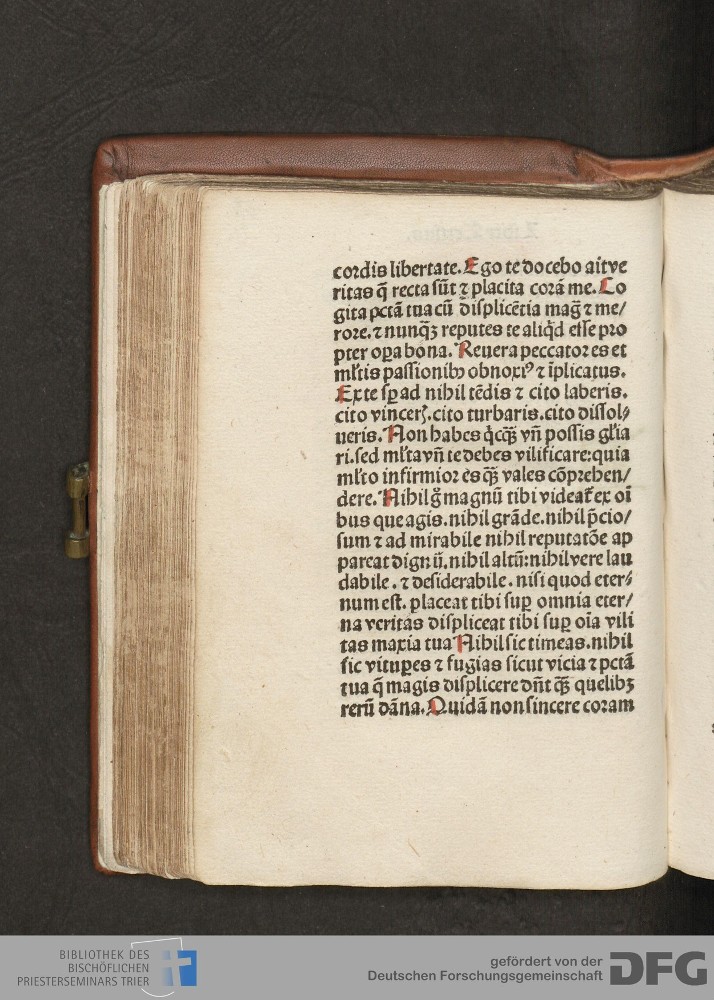 cordis libertate. Ego te docebo ait ve
ritas q̄ recta sūt ⁊ placita corā me. Co
gita pctā tua cū displicētia maḡ ⁊ me/
rore. ⁊ nunq̄ꝫ reputes te aliqḋ esse pro
pter oꝑa bona. Reuera peccator es et
ml̄tis passionibꝰ obnoxiꝰ ⁊ īplicatus.
Ex te sꝑ ad nihil tēdis ⁊ cito laberis.
cito vinceris. cito turbaris. cito dissol⸗
ueris. Non habes q̇cq̄ꝫ vn̄ possis gl̄ia
ri. sed ml̄ta vn̄ te debes vilificare: quia
ml̄to infirmior es q̄ꝫ vales cōprehen/
dere. Nihil g̊ magnū tibi videat᷑ ex oī
bus que agis. nihil grāde. nihil p̄cio/
sum ⁊ ad mirabile nihil reputatōe ap
pareat dignū. nihil altū: nihil vere lau
dabile. ⁊ desiderabile. nisi quod eter⸗
num est. placeat tibi suꝑ omnia eter/
na veritas displiceat tibi suꝑ oīa vili
tas maxia tua Nihil sic timeas. nihil
sic vituꝑes ⁊ fugias sicut vicia ⁊ pctā
tua q̄ magis displicere dn̄t q̄ꝫ quelibꝫ
rerū dāna. Quidā non sincere coram
BIBLIOTHEK DES
BISCHÖFLICHEN
PRIESTERSEMINARS TRIER
gefördert von der
Deutschen Forschungsgemeinschaft
DFG